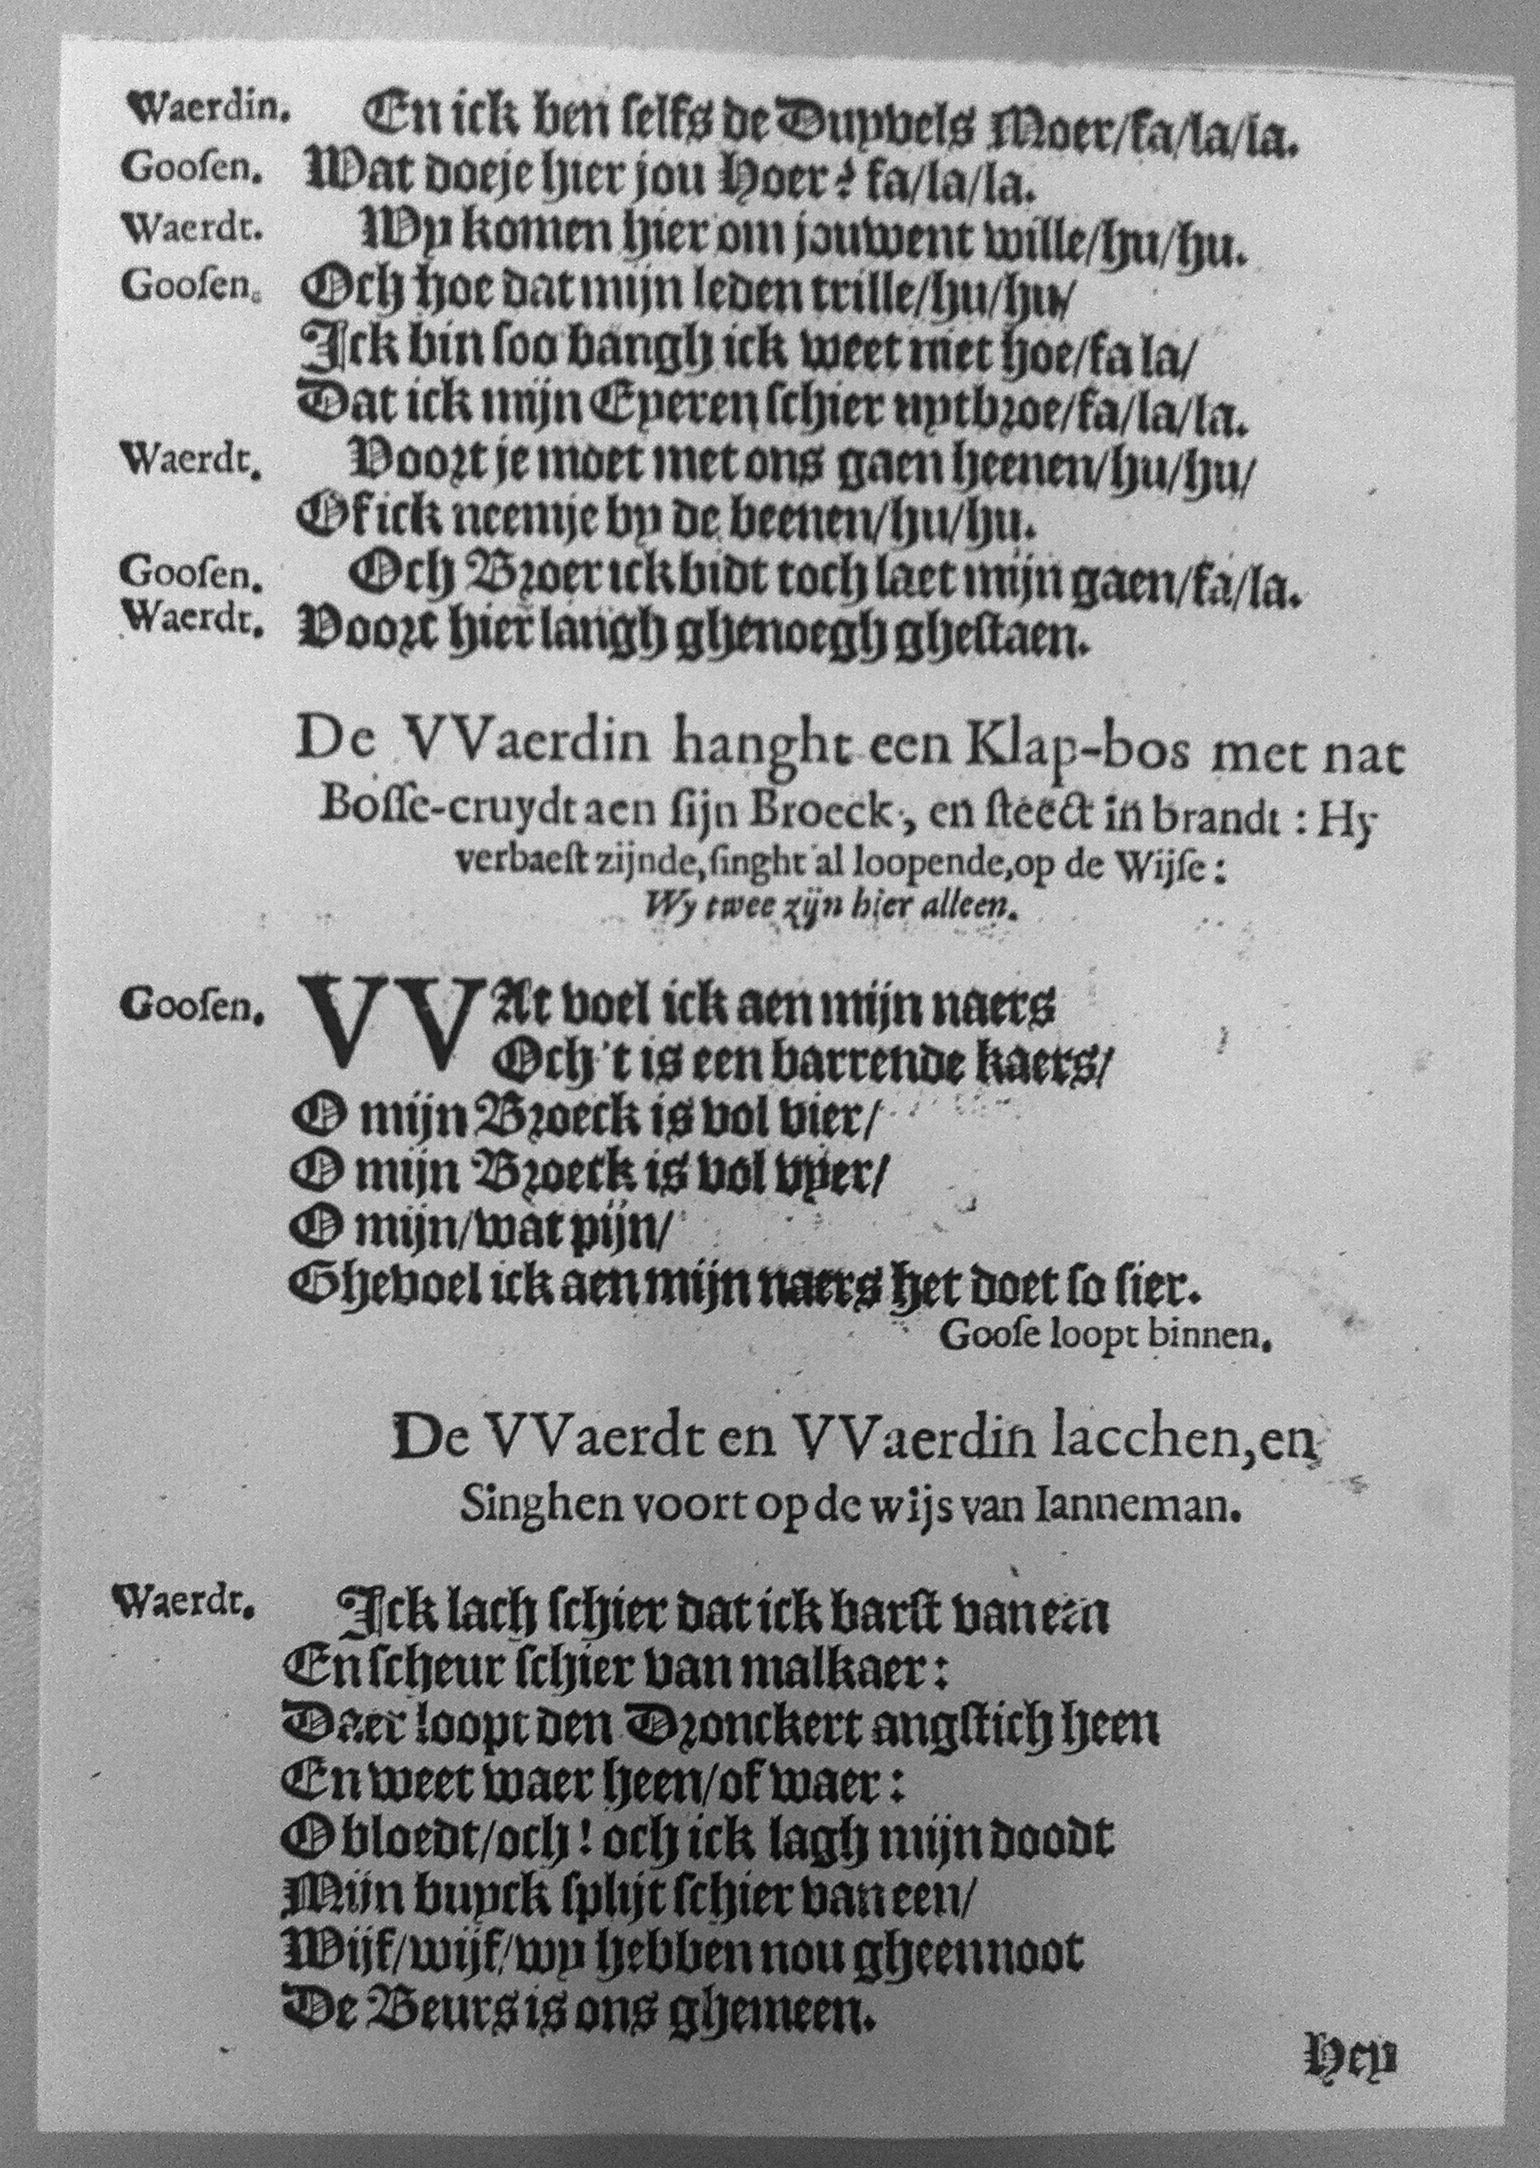 Waerdin. En ick ben ſelfs de Duyvels Moer/fa/la/la.
Gooſen. Wat doeje hier jou Hoer? fa/la/la.
Waerdt. Wy komen hier om jouwent wille/hu/hu.
Gooſen. Och hoe dat mijn leden trille/hu/hu/
Ick bin ſoo bangh ick weet niet hoe/fa la/
Dat ick mijn Eyeren ſchier uytbroe/fa/la/la.
Waerdt. Voort je moet met ons gaen heenen/hu/hu/
Of ick neemje by de beenen/hu/hu.
Gooſen. Och Broer ick bidt toch laet mijn gaen/fa/la.
Waerdt. Voort hier langh ghenoegh gheſtaen.
De VVaerdin hanght een Klap-bos met nat
Boſſe-cruydt aen ſijn Broeck, en ſteect in brandt : Hy
verbaeſt zijnde, ſinght al loopende, op de Wijſe :
Wy twee zijn hier alleen.
Gooſen. VVAt voel ick aen mijn naers
Och 't is een barrende kaers/
O mijn Broeck is vol vier/
O mijn Broeck is vol vyer/
O mijn/wat pijn/
Ghevoel ick aen mijn naers het doet ſo ſier.
Gooſe loopt binnen.
De VVaerdt en VVaerdin lacchen, en
Singhen voort op de wijs van Ianneman.
Waerdt. Ick lach ſchier dat ick barſt van een
En ſcheur ſchier van malkaer :
Daer loopt den Dronckert angſtich heen
En weet waer heen/of waer :
O bloedt/och! och ick lagh mijn doodt
Mijn buyck ſplijt ſchier van een/
Wijf/wijf/wy hebben nou gheen noot
De Beurs is ons ghemeen.
Hey